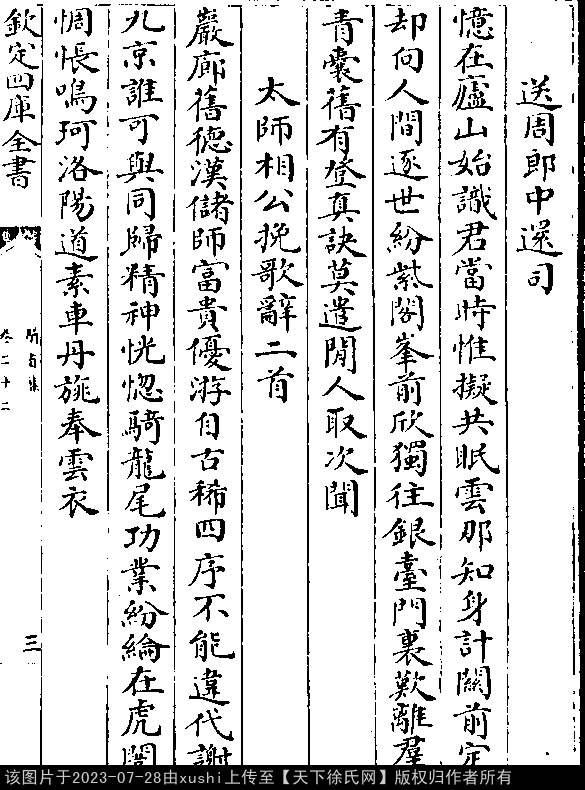 送周郎中選司
憶在廬山始識君當時惟擬共眠雲那知身計關前定
却向人間逐世紛紫閣峯前欣獨往銀臺門裏歎離羣
青囊舊有登真訣莫遣閒人取次聞
太師相公挽歌辭二首
嚴廊舊德漢儲師富貴優游自古稀四序不能違代謝
九京誰可與同歸精神恍惚騎龍尾功業紛綸在虎闈
惆悵鳴珂洛陽道素車丹旐奉雲衣
欽定四庫全書
卷二十二
三
该图片于2023-07-28由xushi上传至【天下徐氏网】版权归作者所有